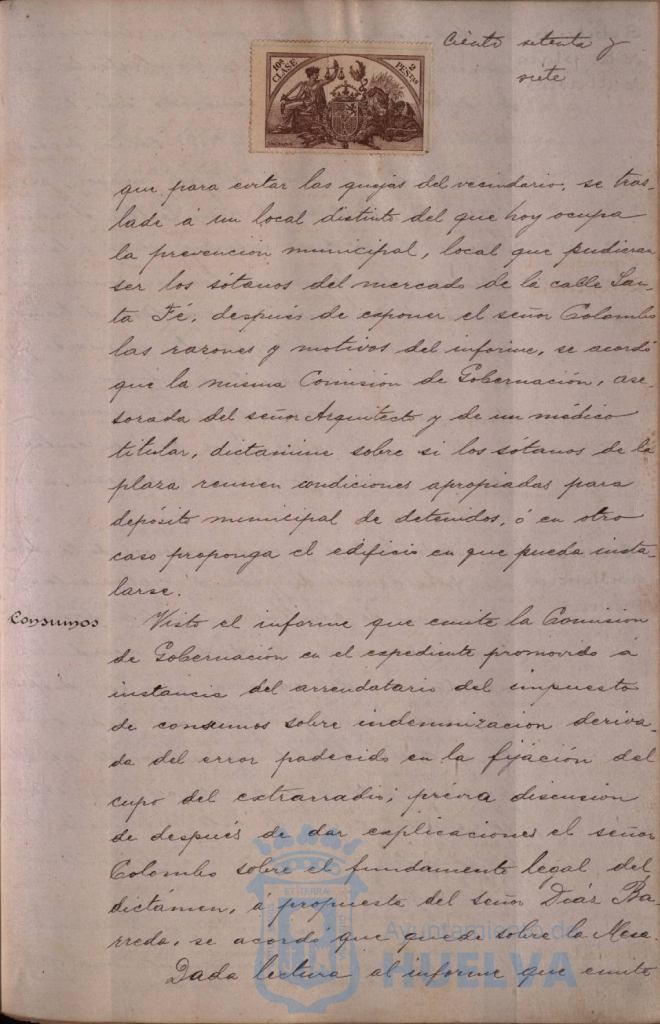 Ciento setenta y
siete
10ª CLASE
2 PESETAS
que para evitar las quejas del vecindario, se tras-
lade á un local distinto del que hoy ocupa
la prevención municipal, local que pudieran
ser los sótanos del mercado de la calle San-
ta Fé, después de exponer el señor Colombo
las razones y motivos del informe, se acordó
que la misma Comisión de Gobernación, ase-
sorada del señor Arquitecto y de un médico
titular, dictamine sobre si los sótanos de la
plaza reunen condiciones apropiadas para
depósito municipal de detenidos, ó en otro
caso proponga el edificio en que pueda insta-
larse.
Consumos
Visto el informe que emite la Comision
de Gobernación en el expediente promovido á
instancia del arrendatario del impuesto
de consumos sobre indemnizacion deriva-
da del error padecido en la fijación del
cupo del extrarradio; prévia discusion
de después de dar explicaciones el señor
Colombo sobre el fundamento legal del
dictámen, á propuesta del señor Diáz Ba-
rreda, se acordó que quede sobre la Mesa.
Dada lectura al informe que emite
Ayuntamiento de
HUELVA